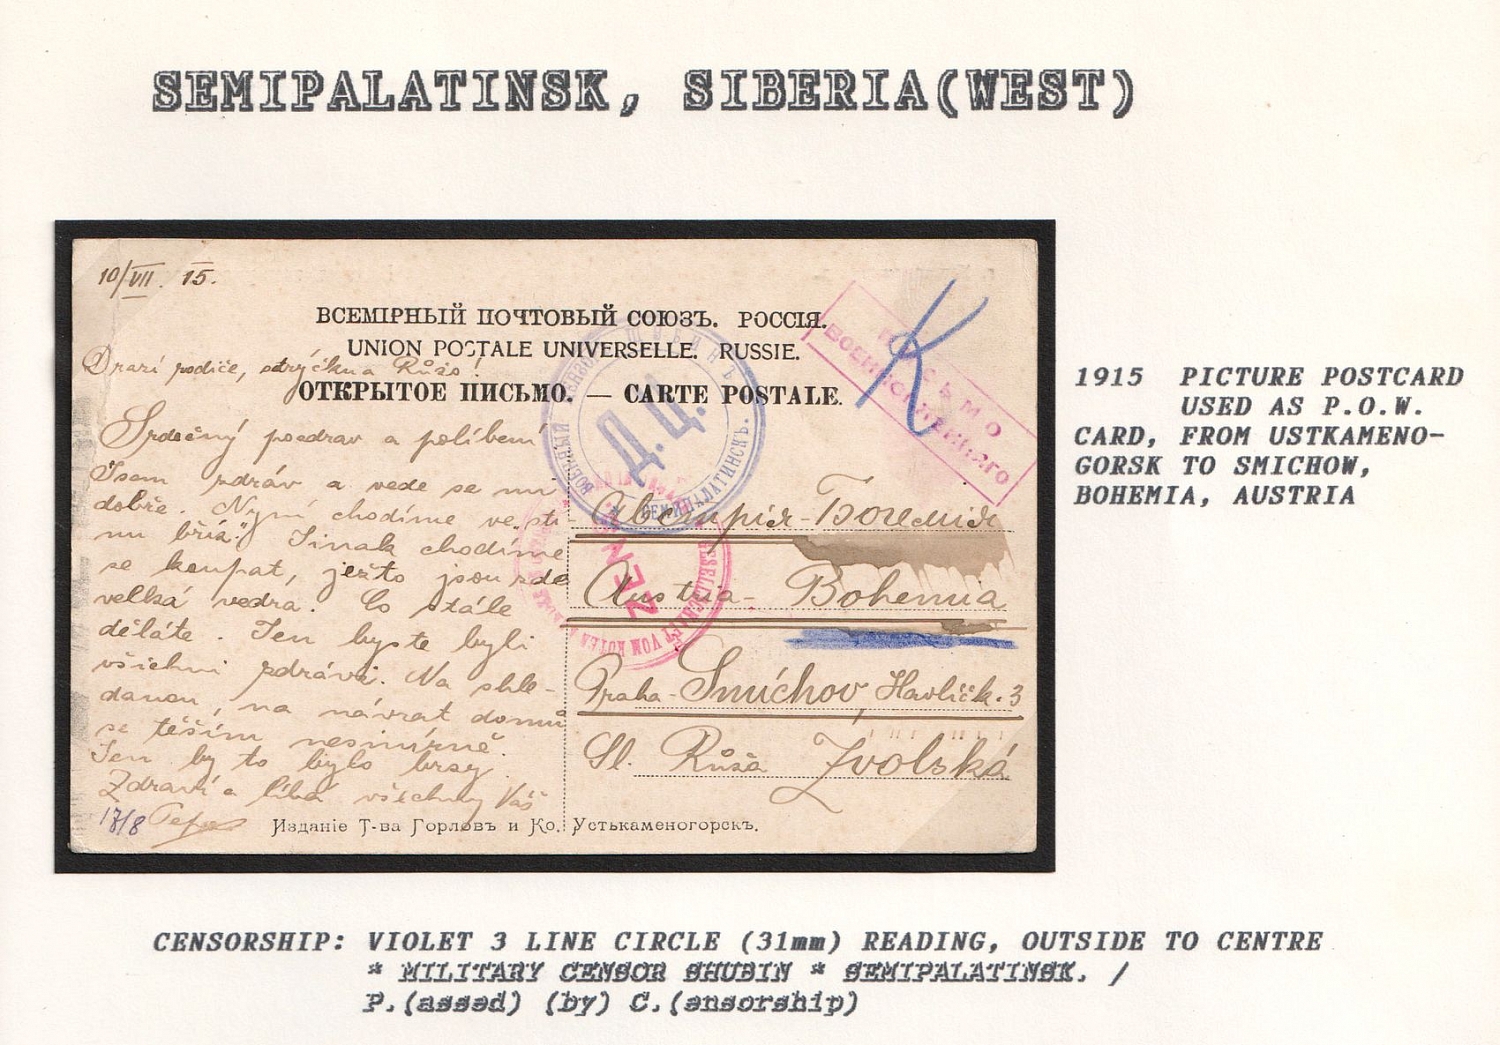 SEMIPALATINSK, SIBERIA(WEST)
10/VII. 15.
ВСЕМІРНЫЙ ПОЧТОВЫЙ СОЮЗЪ. РОССІЯ.
UNION POSTALE UNIVERSELLE. RUSSIE.
Drazí rodiče, strýčku a Růžo!
ОТКРЫТОЕ ПИСЬМО. — CARTE POSTALE.
ПИСЬМО
ВОЕННОПЛѢННАГО
K
ВОЕННЫЙ ЦЕНЗОРЪ ШУБИНЪ * СЕМИПАЛАТИНСКЪ.
Д.Ц.
Srdečný pozdrav a políbení
Jsem zdráv a vede se mi
dobře. Nyní chodíme ve
Jinak chodíme
se koupat, ježto jsou zde
velká vedra. Co stále
děláte. Jen byste byli
všichni zdrávi. Na shle-
danou, na návrat domů
se těším nesmírně.
Jen by to bylo brzy.
Zdraví a líbá všechny Váš
Pepa
17/8
Австрія-Богемія
Austria- Bohemia
Praha-Smíchov, Havlíčk. 3
Sl. Růža Zvolská
GESELLSCHAFT VOM ROTEN
WIEN
ZEN
Изданіе Т-ва Горловъ и Ко. Устькаменогорскъ.
1915 PICTURE POSTCARD
USED AS P.O.W.
CARD, FROM USTKAMENO-
GORSK TO SMICHOW,
BOHEMIA, AUSTRIA
CENSORSHIP: VIOLET 3 LINE CIRCLE (31mm) READING, OUTSIDE TO CENTRE
* MILITARY CENSOR SHUBIN * SEMIPALATINSK. /
P.(assed) (by) C.(ensorship)